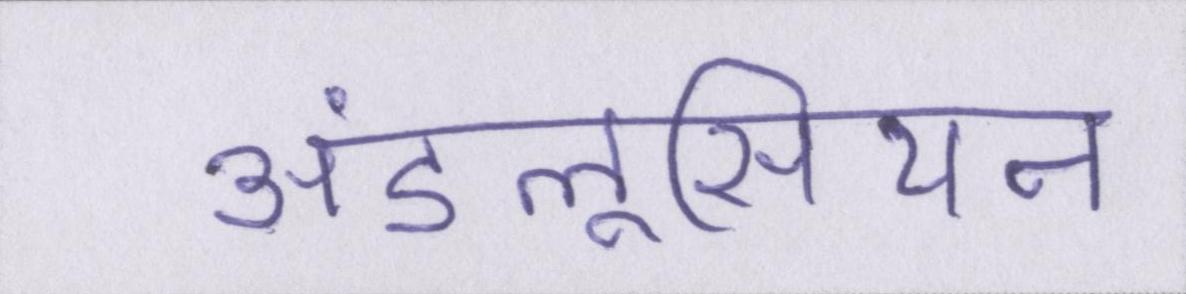 अंडलूसियन